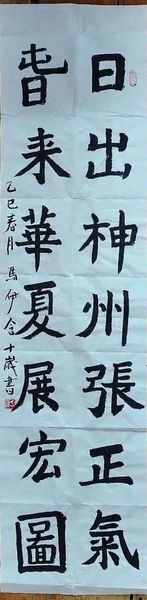 日出神州張正氣
旾来華夏展宏圖
乙巳春月馬伊含十歲書